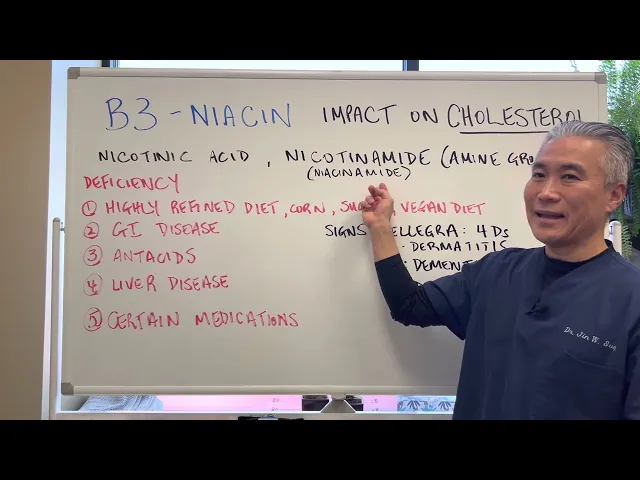 B3 - NIACIN IMPACT ON CHOLESTEROL
NICOTINIC ACID , NICOTINAMIDE (AMINE
(NIACINAMIDE)
DEFICIENCY
① HIGHLY REFINED DIET, CORN, , VEGAN DIET
② GI DISEASE
③ ANTACIDS
④ LIVER DISEASE
⑤ CERTAIN MEDICATIONS
SIGNS : 4 Ds
DERMATITIS
Dr. Jin W.